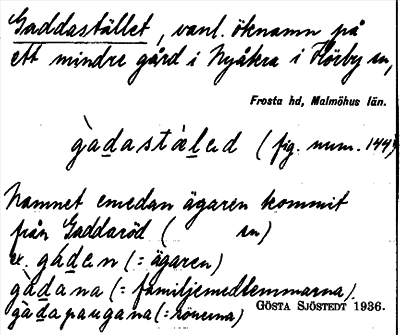 Gaddastället, vanl. öknamn på
ett mindre gård i Nyåkra i Hörby sn,
Frosta hd, Malmöhus län.
gàdastàled (fig. num. 144)
Namnet emedan ägaren kommit
från Gaddaröd ( sn)
ex. gáden (= ägaren)
gàdana (= familjemedlemmarna).
GÖSTA SJÖSTEDT 1936.
gàdapaugana (= sönerna)